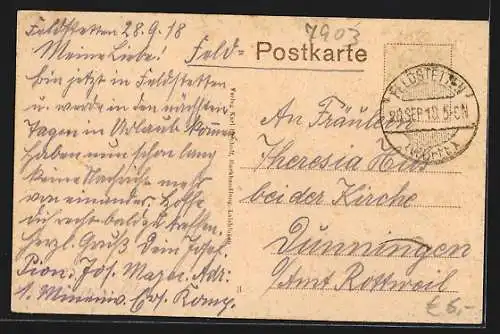 Feldstetten 28.9.18
7903
Meine Liebe!
Feld-
Postkarte
Bin jetzt in Feldstetten
u. werde in den nächsten
Tagen in Urlaub kommen
haben nun schon lang
keine Nachricht mehr
von einander. Hoffe
dich recht bald zu treffen.
Herzl. Gruß Dein Josef.
Pion. Jos. Mager. Adr:
1. Minenw. Ers. Komp.
FELDSTETTEN
SEP. 18. 5-6N
An Fräulein
Theresia
bei der Kirche
Dunningen
Amt Rottweil
€ 6,-